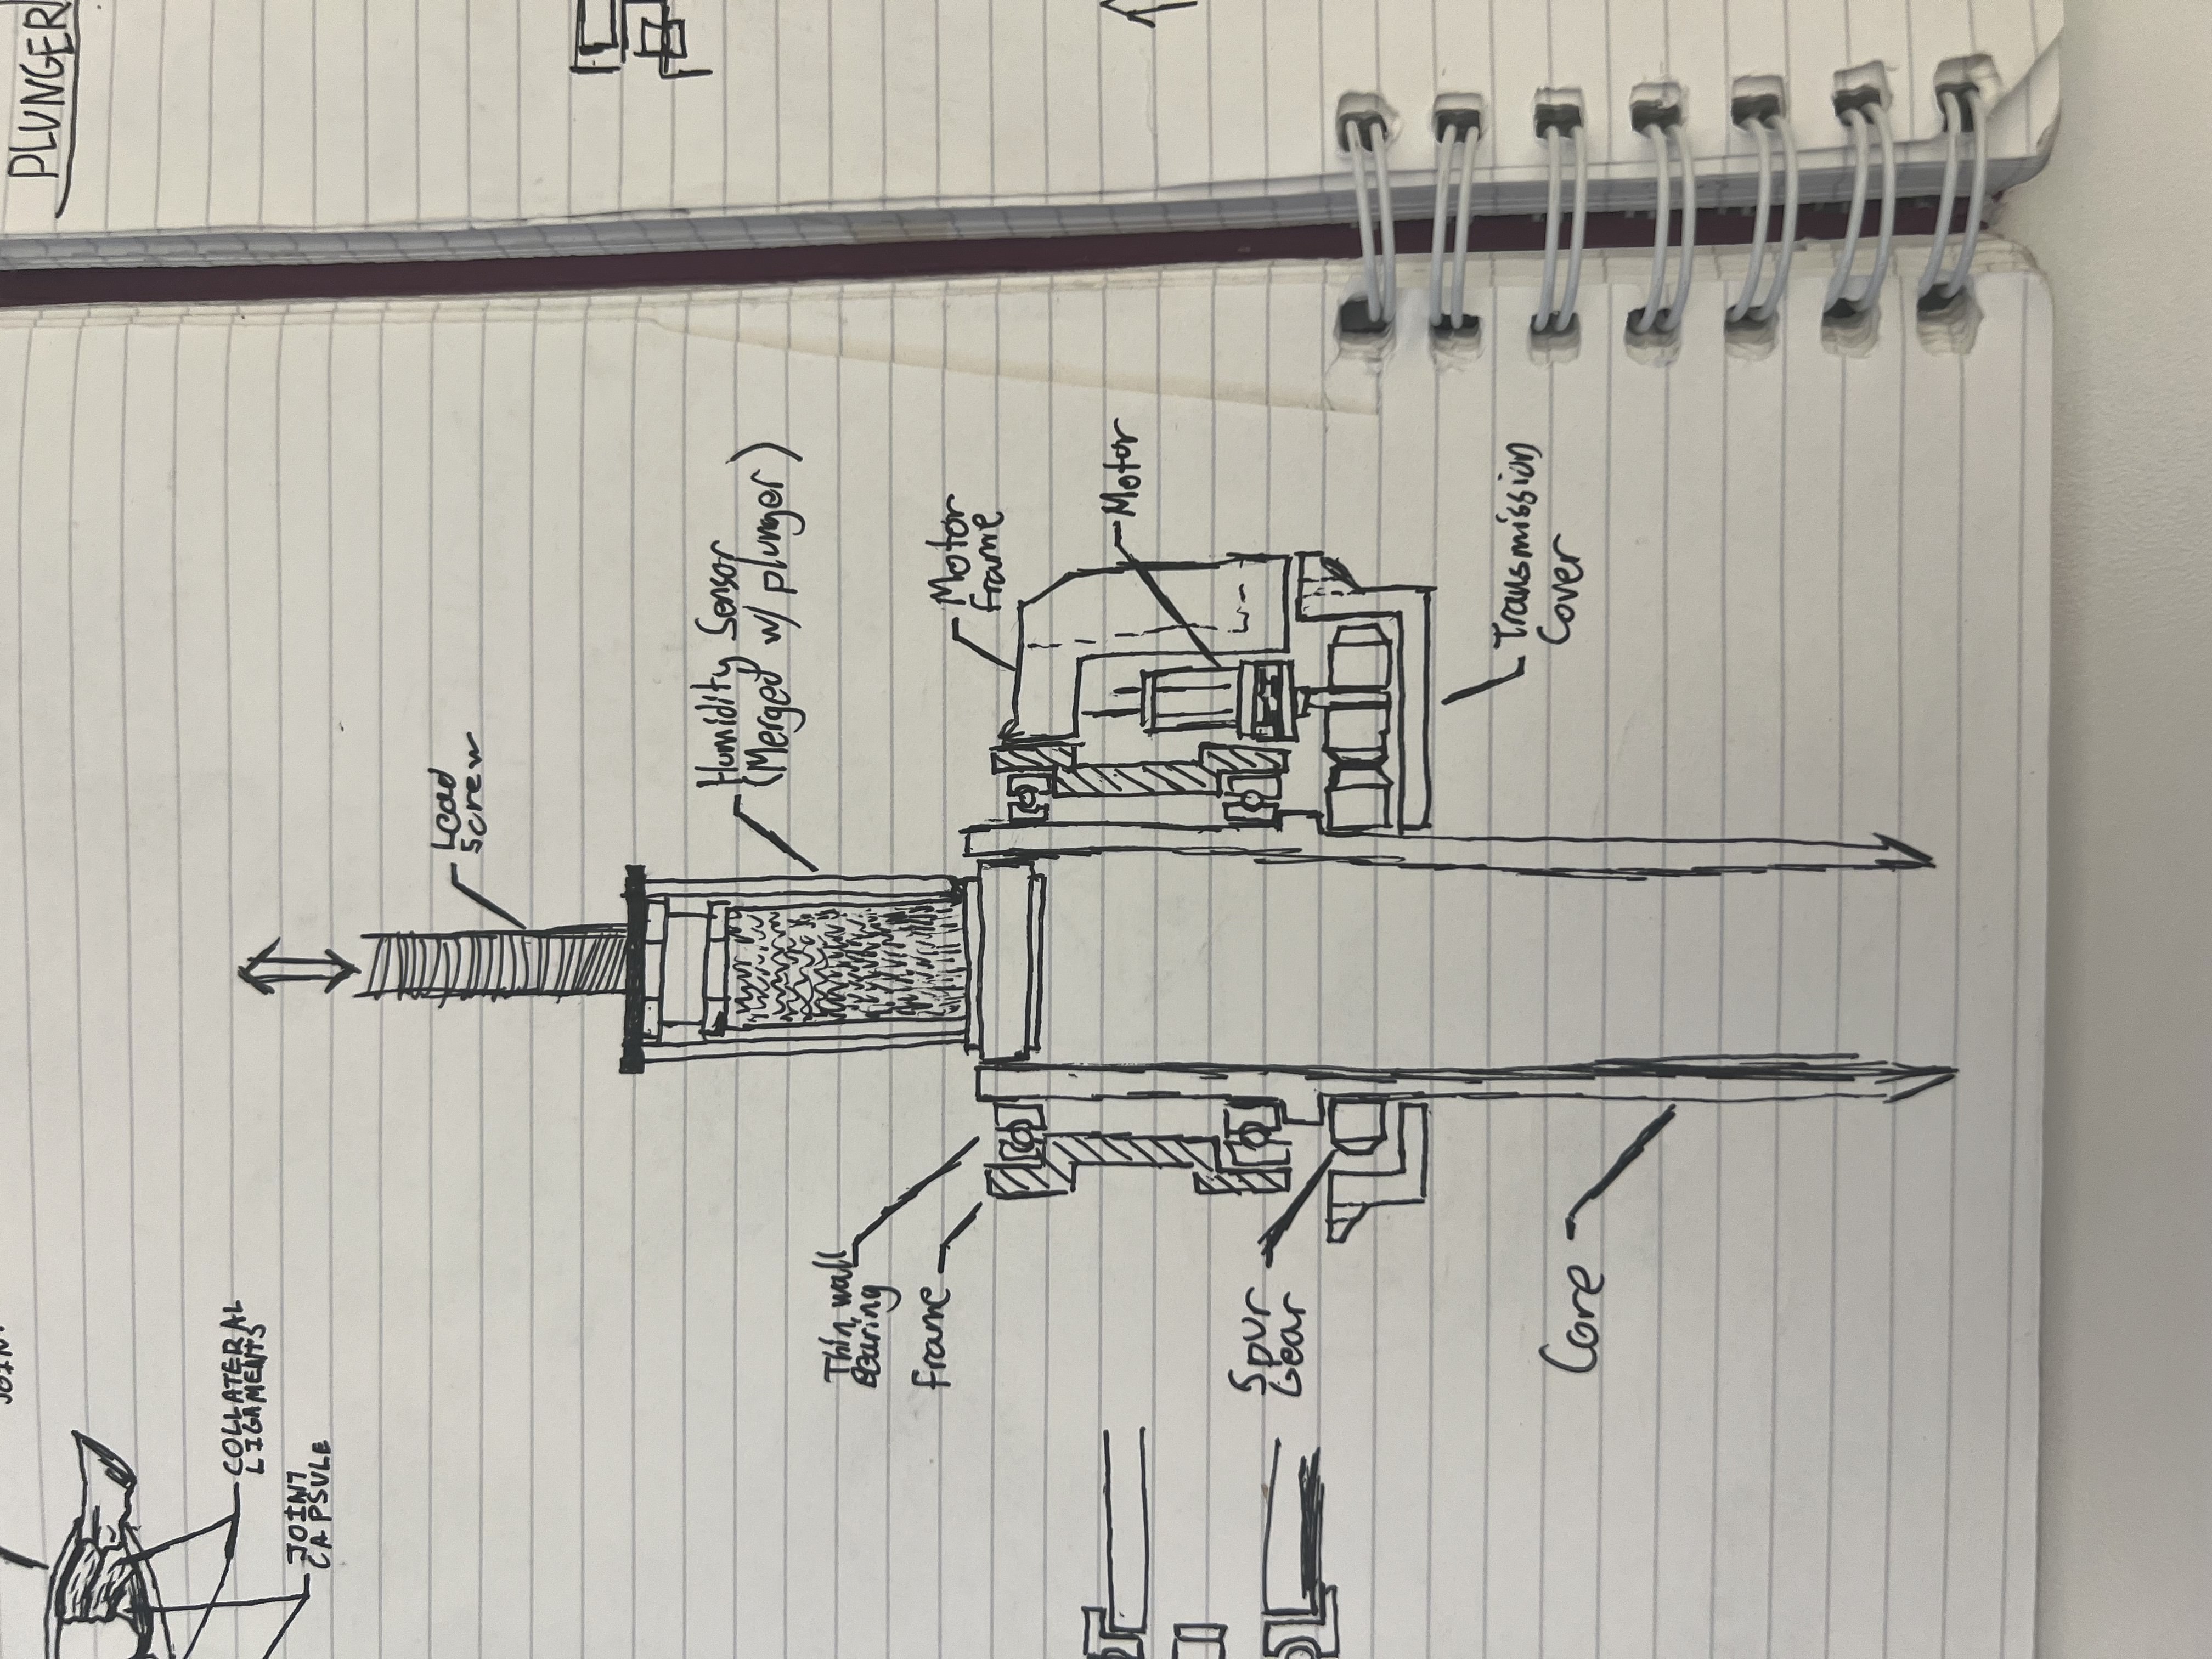 JOINT
PLUNGER
COLLATERAL
LIGAMENTS
JOINT
CAPSULE
Lead
Screw
Humidity Sensor
(Merged w/ plunger)
Thin wall
Bearing
Frame
Motor
Frame
Motor
Spur
Gear
Transmission
Cover
Core